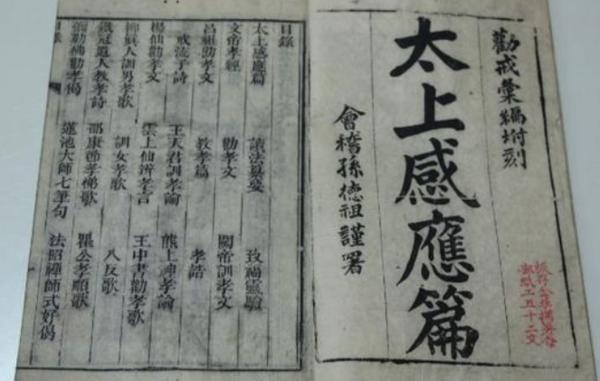 勸戒彙編坿刻
太上感應篇
會稽孫德祖謹署
紙工五十二文
目錄
太上感應篇 讀法纂要 致福靈驗
文帝孝經 勸孝文 關帝訓孝文
呂祖勸孝文 教孝篇 孝誥
子詩 王天君訓孝論 神孝論
楊仙勸孝文 雲上仙辨孝言 王中書勸孝歌
人訓男孝歌 訓女孝歌 八反歌
鐵冠道人教孝詩 邵康節孝悌歌 瞿公孝順歌
彌勒佛勸孝偈 蓮池大師七筆勾 法照禪師式好偈